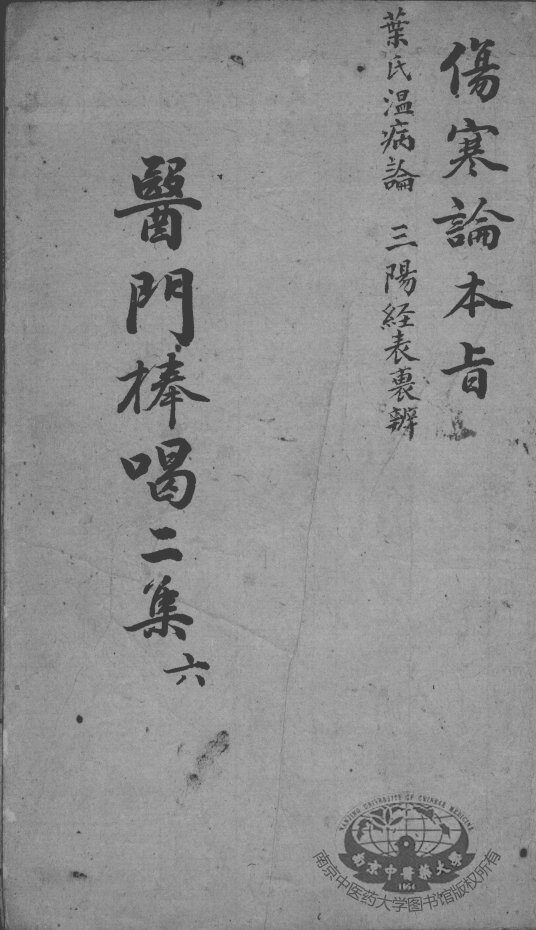 傷寒論本旨
葉氏温病論 三陽経表裏辨
醫門棒喝二集
六
NANJING UNIVERSITY OF CHINESE MEDICINE
南京中醫藥大學
1954
南京中医药大学图书馆版权所有